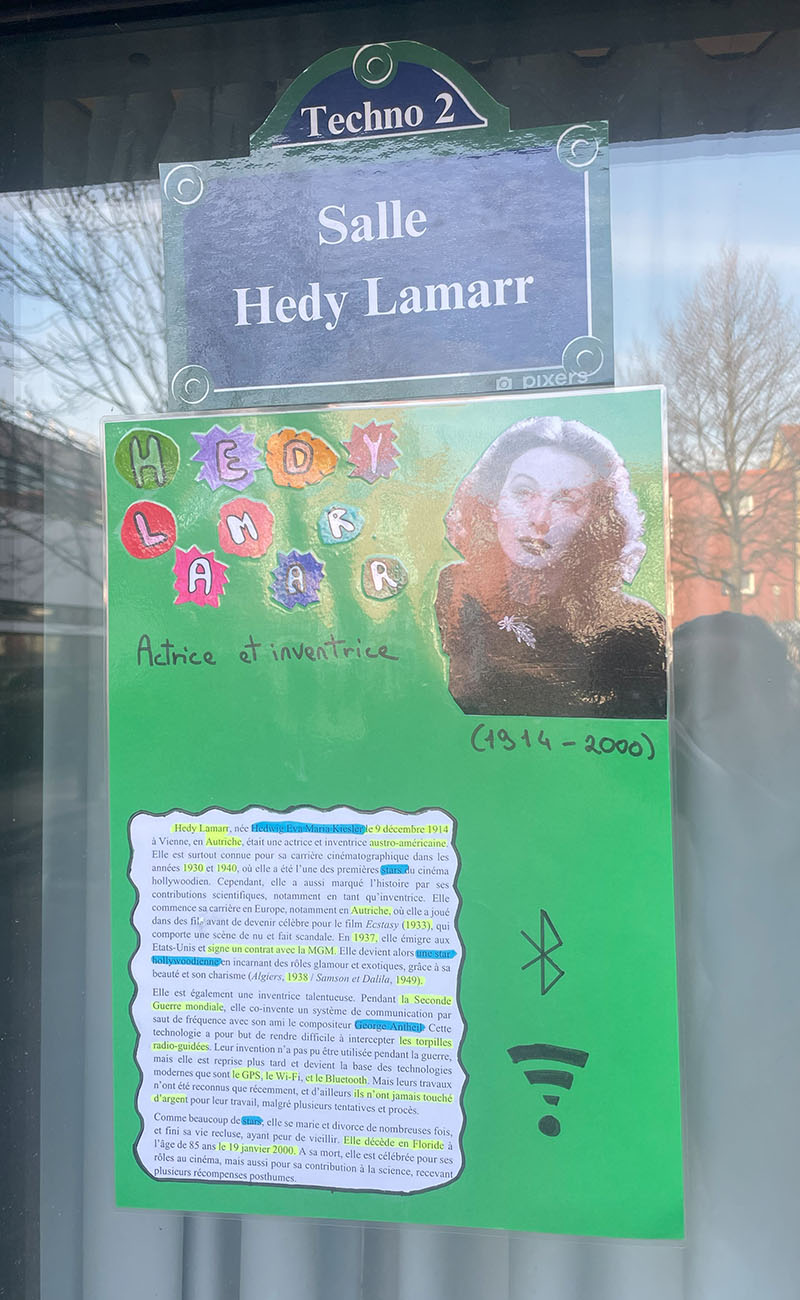 Techno 2
Salle
Hedy Lamarr
pixers
HEDY
LMR
AAR
Actrice et inventrice
(1914 - 2000)
Hedy Lamarr, née Hedwig Eva Maria Kiesler le 9 décembre 1914
à Vienne, en Autriche, était une actrice et inventrice austro-américaine.
Elle est surtout connue pour sa carrière cinématographique dans les
années 1930 et 1940, où elle a été l'une des premières stars du cinéma
hollywoodien. Cependant, elle a aussi marqué l'histoire par ses
contributions scientifiques, notamment en tant qu'inventrice. Elle
commence sa carrière en Europe, notamment en Autriche, où elle a joué
dans des films avant de devenir célèbre pour le film Ecstasy (1933), qui
comporte une scène de nu et fait scandale. En 1937, elle émigre aux
Etats-Unis et signe un contrat avec la MGM. Elle devient alors une star
hollywoodienne en incarnant des rôles glamour et exotiques, grâce à sa
beauté et son charisme (Algiers, 1938 / Samson et Dalila, 1949).
Elle est également une inventrice talentueuse. Pendant la Seconde
Guerre mondiale, elle co-invente un système de communication par
saut de fréquence avec son ami le compositeur George Antheil. Cette
technologie a pour but de rendre difficile à intercepter les torpilles
radio-guidées. Leur invention n'a pas pu être utilisée pendant la guerre,
mais elle est reprise plus tard et devient la base des technologies
modernes que sont le GPS, le Wi-Fi, et le Bluetooth. Mais leurs travaux
n'ont été reconnus que récemment, et d'ailleurs ils n'ont jamais touché
d'argent pour leur travail, malgré plusieurs tentatives et procès.
Comme beaucoup de stars, elle se marie et divorce de nombreuses fois,
et fini sa vie recluse, ayant peur de vieillir. Elle décède en Floride à
l'âge de 85 ans le 19 janvier 2000. A sa mort, elle est célébrée pour ses
rôles au cinéma, mais aussi pour sa contribution à la science, recevant
plusieurs récompenses posthumes.